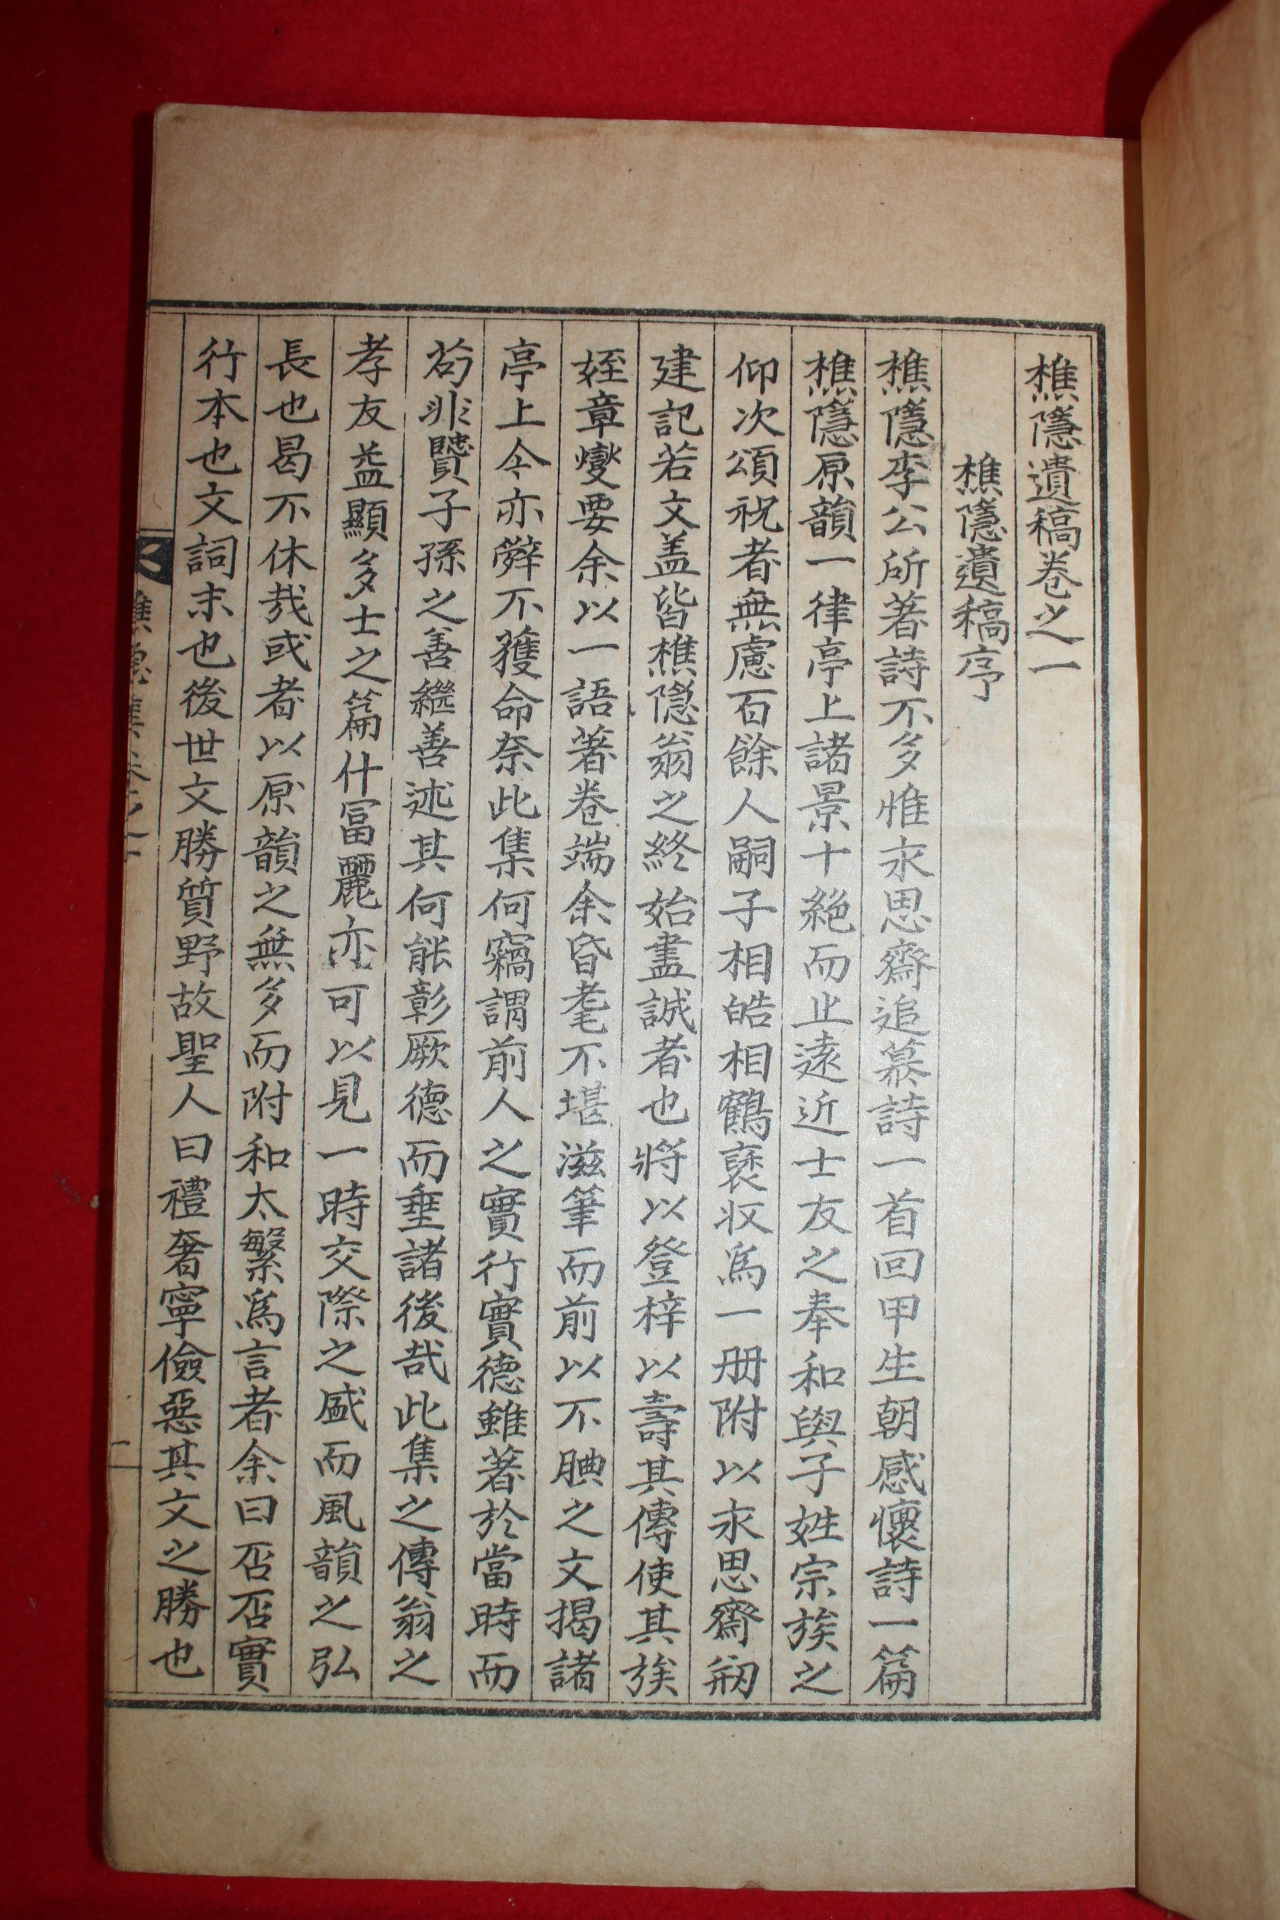 樵隱遺稿卷之一
樵隱遺稿序
樵隱李公所著詩不多惟永思齋追慕詩一首回甲生朝感懷詩一篇
樵隱原韻一律亭上諸景十絶而止遠近士友之奉和與子姓宗族之
仰次頌祝者無慮百餘人嗣子相皓相鶴裒収爲一册附以永思齋刱
建記若文盖皆樵隱翁之終始盡誠者也將以登梓以壽其傳使其族
姪章燮要余以一語著卷端余昏耄不堪滋筆而前以不腆之文揭諸
亭上今亦辤不獲命奈此集何竊謂前人之實行實德雖著於當時而
茍非賢子孫之善繼善述其何能彰厥德而垂諸後哉此集之傳翁之
孝友益顯多士之篇什冨麗亦可以見一時交際之盛而風韻之弘
長也曷不休哉或者以原韻之無多而附和太繁爲言者余曰否否實
行本也文詞末也後世文勝質野故聖人曰禮奢寧儉惡其文之勝也
樵隱集卷之一
一